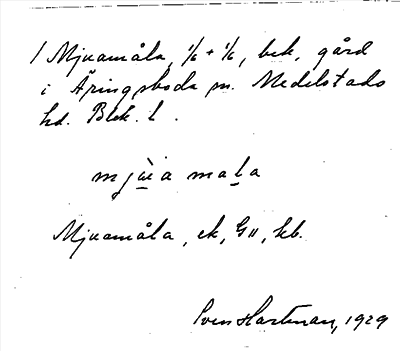 / Mjuamåla, 1/6 + 1/6, bek. gård
i Åringsboda sn. Medelstads
hd. Blek. l.
mjùa mala
Mjuamåla, ek, G11, kb.
Sven Hartman, 1929